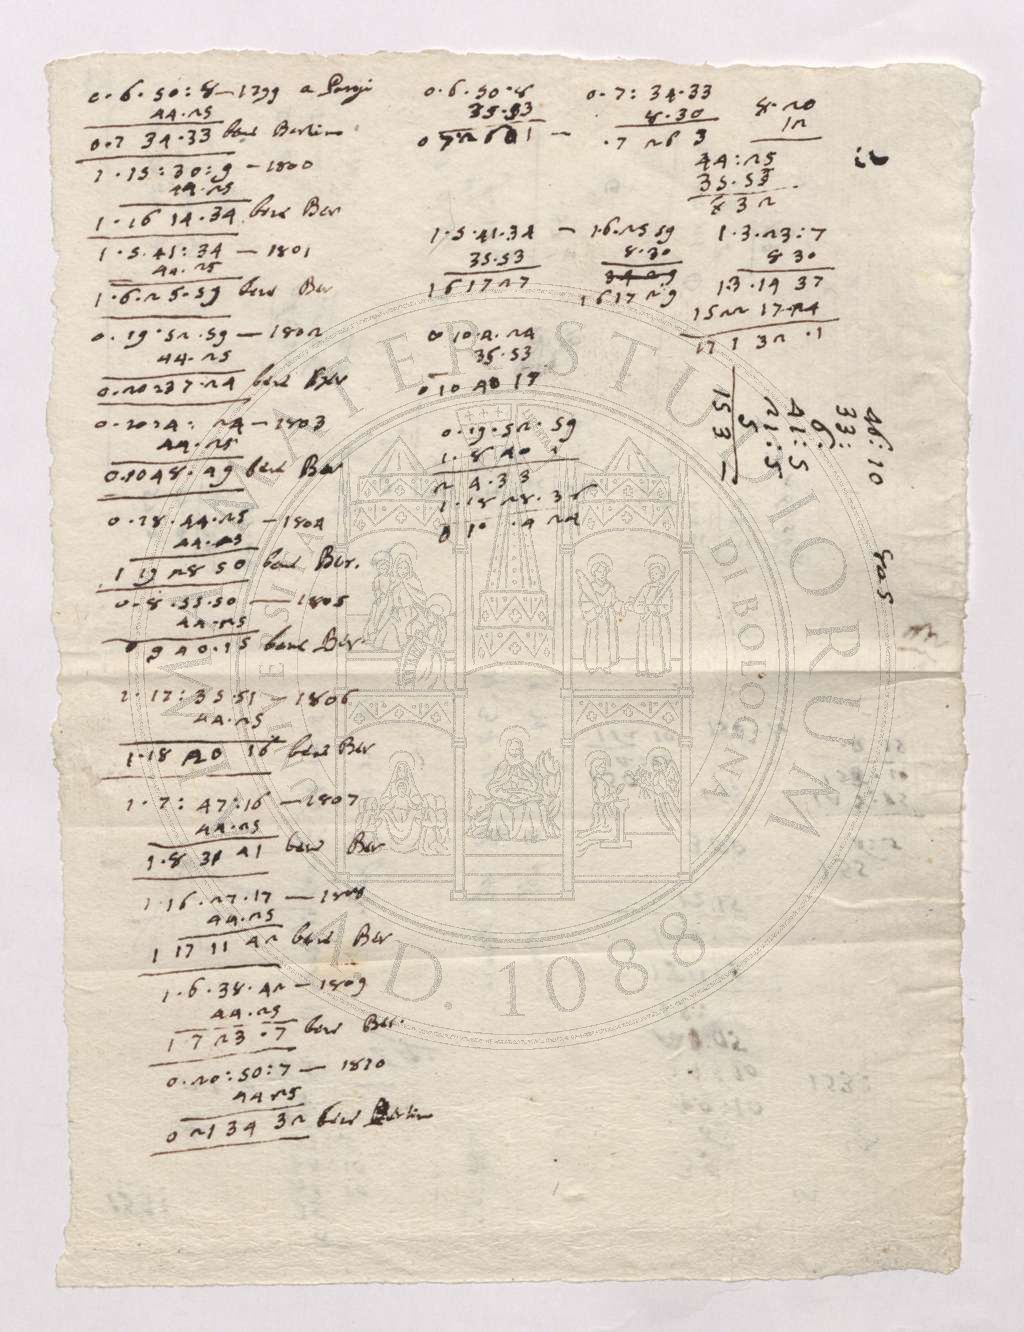 0. 6. 50:8 — 1799 a Parigi
44.25
0.7 34.33 bene Berlino
1. 15: 30: 9 — 1800
44.25
1. 16 14.34 bene Ber
1. 5. 41: 34 — 1801
44.25
1. 6. 25. 59 bene Ber
0. 19: 52. 59 — 1802
44.25
0. 20 37. 24 bene Ber
0. 10 4: 24 — 1803
44.25
0.10 48. 49 bene Ber
0. 18. 44. 25 — 1804
44.25
1 19 28 50 bene Ber.
0. 8. 55. 50 — 1805
44.25
0 9 40. 15 bene Ber.
1. 17: 35. 51 — 1806
44.25
1. 18 20 16 bene Ber
1. 7: 47: 16 — 1807
44.25
1. 8 31 41 bene Ber
1. 16. 27. 17 — 1808
44.25
1 17 11 42 bene Ber
1. 6. 38. 42 — 1809
44.25
1 7 23. 7 bene Ber.
0. 20: 50: 7 — 1810
44 25
0 21 34 32 bene Berlino
0. 6. 50. 8
35.53
—
0. 7: 34. 33
8. 30
. 7 26 3
8. 20
12
44: 25
35. 53
8 32
1. 5. 41. 34 —
35. 53
1 6 17 27
1. 6. 25 59
8. 30
1 6 17 29
1. 3. 23: 7
8 30
13. 14 37
15 22 17. 24
17 1 32. 1
0 10. 4. 24
35. 53
0 10 40 17
0. 19. 52. 59
1. 8 40 1
2 4. 33
0 10. 4 24
46: 10
33:
6:
41: 5
21: 5
5
15 3
505
ALMA MATER STUDIORUM
UNIVERSITÀ DI BOLOGNA
A.D. 1088